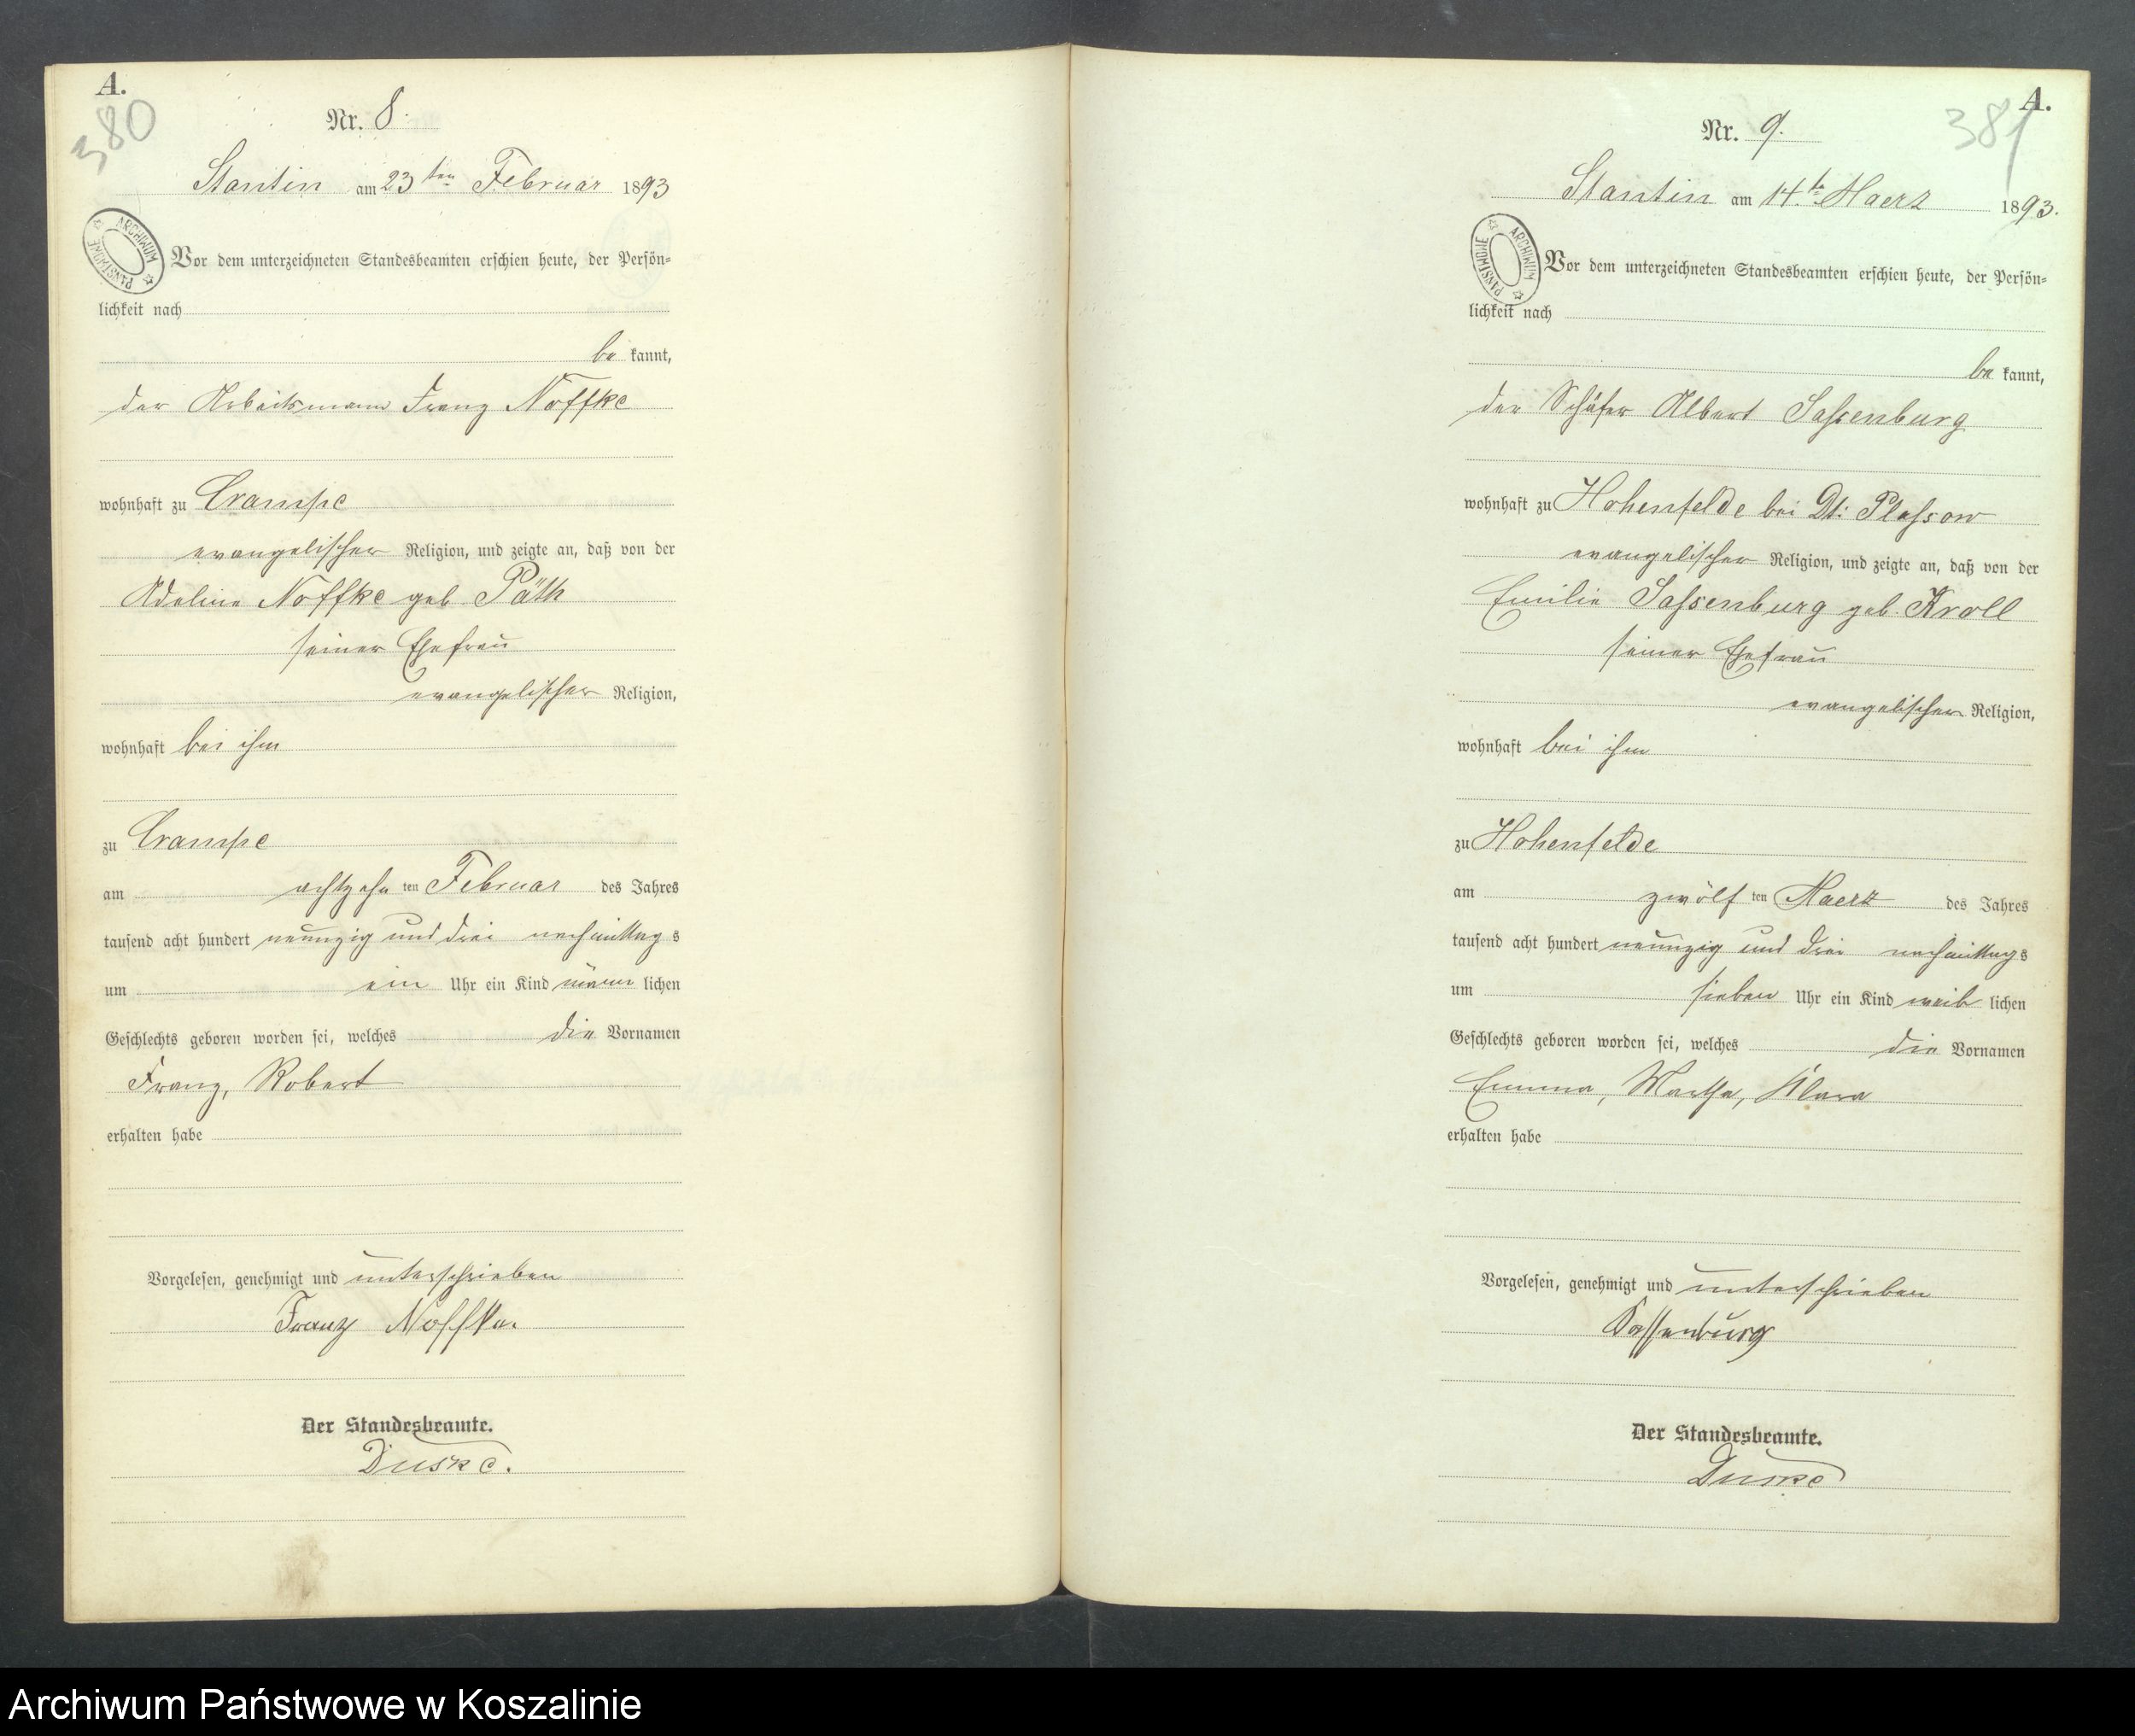 A.
380
Nr. 8.
Stantin am 23ten Februar 1893
ARCHIWUM PAŃSTWOWE
Vor dem unterzeichneten Standesbeamten erschien heute, der Persön=
lichkeit nach
be kannt,
der Arbeitsmann Franz Noffke
wohnhaft zu Crampe
evangelischer Religion, und zeigte an, daß von der
Adeline Noffke geb Päth
seiner Ehefrau
evangelischer Religion,
wohnhaft bei ihm
zu Crampe
am achtzehn ten Februar des Jahres
tausend acht hundert neunzig und drei nachmittags
um ein Uhr ein Kind männ lichen
Geschlechts geboren worden sei, welches die Vornamen
Franz, Robert
erhalten habe
Vorgelesen, genehmigt und unterschrieben
Franz Noffke.
Der Standesbeamte.
Duske.
A.
381
Nr. 9.
Stantin am 14.te Maerz 1893.
ARCHIWUM PAŃSTWOWE
Vor dem unterzeichneten Standesbeamten erschien heute, der Persön=
lichkeit nach
be kannt,
der Schäfer Albert Sassenburg
wohnhaft zu Hohenfelde bei Dt: Plassow
evangelischer Religion, und zeigte an, daß von der
Emilie Sassenburg geb. Kroll
seiner Ehefrau
evangelischer Religion,
wohnhaft bei ihm
zu Hohenfelde
am zwölf ten Maerz des Jahres
tausend acht hundert neunzig und drei nachmittags
um sieben Uhr ein Kind weib lichen
Geschlechts geboren worden sei, welches die Vornamen
Emma, Martha, Klara
erhalten habe
Vorgelesen, genehmigt und unterschrieben
Sassenburg
Der Standesbeamte.
Duske
Archiwum Państwowe w Koszalinie